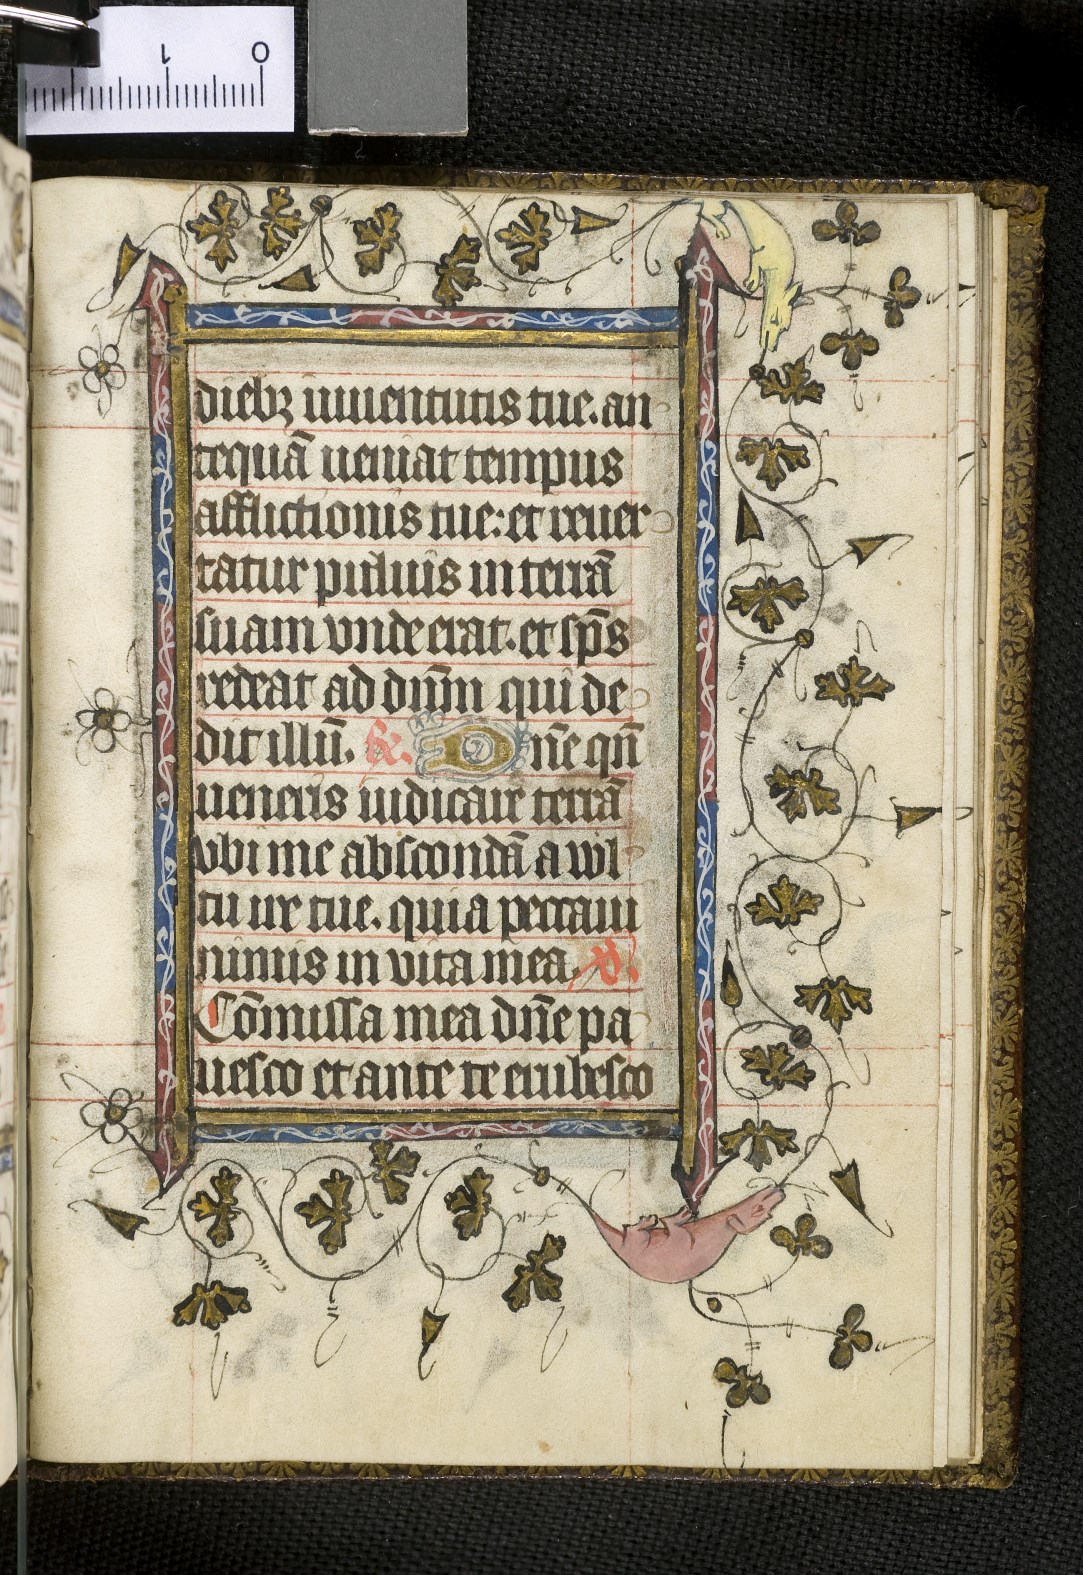 1 0
dieb⁊ iuuentutis tue. an
tequā ueniat tempus
afflictionis tue: et reuer
tatur puluis in terrā
suam vnde erat. et sp̄s
redeat ad dn̄m qui de
dit illū. ℟. Dn̄e qn̄
ueneris iudicare terrā
vbi me abscondā a wl
tu ire tue. quia peccaui
nimis in vita mea. ℣.
Cōmissa mea dn̄e pa
uesco et ante te erubesco